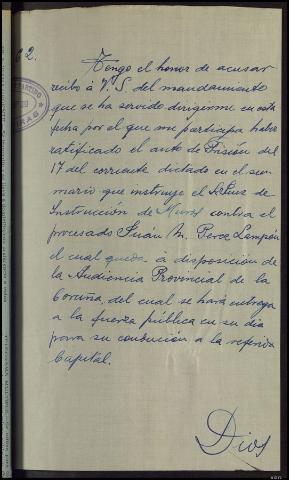 62.
Tengo el honor de acusar
recibo á V.S. del mandamiento
que se ha servido dirigirme en esta
fecha por el que me participa haber
ratificado el auto de Prisión del
17 del corriente dictado en el su-
mario que instruye el Sr Juez de
Instrucción de Muros contra el
procesado Juan M. Perez Lampón
el cual queda á disposición de
la Audiencia Provincial de la
Coruña, del cual se hará entrega
a la fuerza pública en su dia
para su conducion a la referida
Capital.
Dios